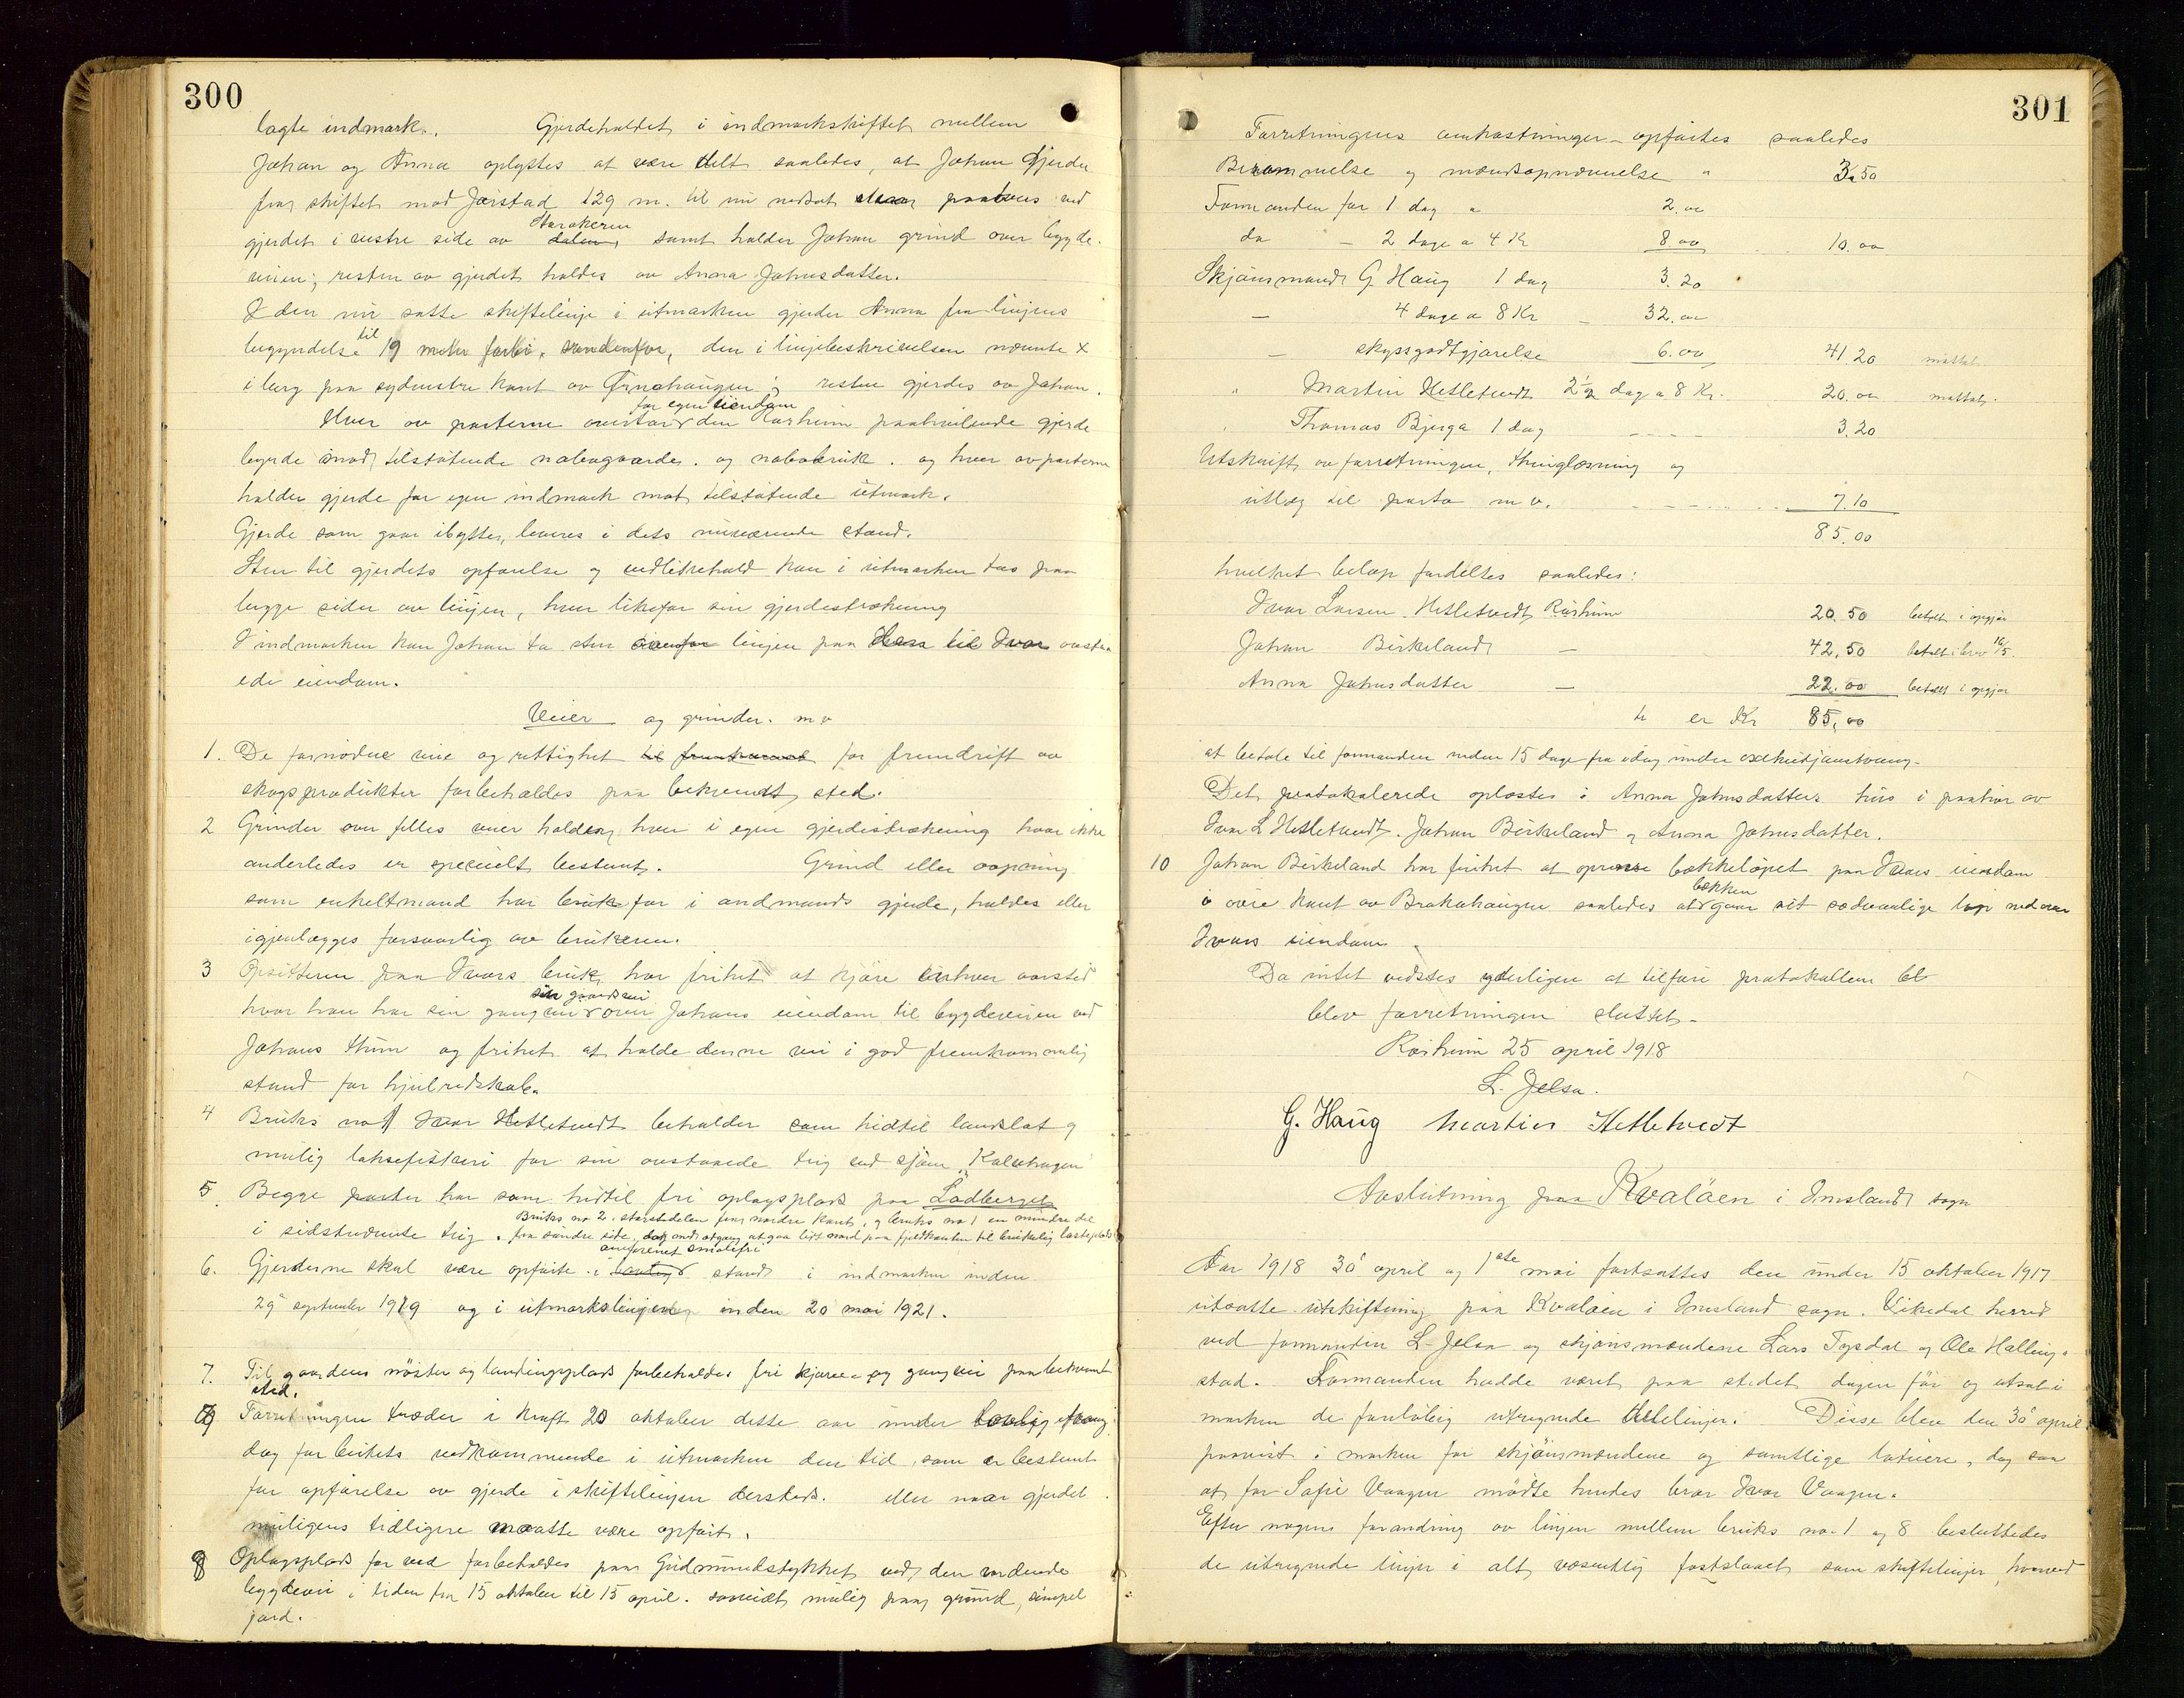 300
lagte indmark. Gjerdeholdet i indmarkskiftet mellem
Johan og Anna oplystes at være delt saaledes, at Johan gjerder
fra skiftet mod Jørstad 129 m. til nu nedsat sten paa ved
gjerdet i vestre side av Storakeren samt holder Johan grind over bygde-
veien; resten av gjerdet holdes av Anna Johnsdatter.
I den nu satte skiftelinje i utmarken gjerder Anna fra linjens
begyndelse til 19 meter forbi, søndenfor, den i linjebeskrivelsen nævnte x
i berg paa sydvestre kant av Grønahaugen; resten gjerdes av Johan.
Hver av parterne overtar for egen eiendom den Røsheim paahvilende gjerde
byrde mod tilstøtende nabogaarder. og nabobruk. og hver av parterne
holder gjerde for egen indmark mot tilstøtende utmark.
Gjerde som gaar ibytte, leveres i dets nuværende stand.
Sten til gjerdets opførelse og vedlikehold kan i utmarken tas paa
begge sider av linjen, hver likefor sin gjerdestrekning
I indmarken kan Johan ta sten ovenfor linjen paa den til Ivar overta
ede eiendom.
Veier og grinder. m v
1. De fornødne veie og rettighet til for fremdrift av
skogsprodukter forbeholdes paa bekvemt sted.
2 Grinder over felles veier holdes, hver i egen gjerdestrækning hvor ikke
anderledes er specielt bestemt. Grind eller aapning
som enkeltmand har bruk for i andmands gjerde, holdes eller
igjenlægges forsvarlig av brukeren.
3 Opsitteren paa Ivars bruk har frihet at kjøre enhver aarstid
hvor han har sin gangvei sin gaardsvei over Johans eiendom til bygdeveien ved
Johans tun og frihet at holde denne vei i god fremkommelig
stand for hjulredskab.
4 Bruks no 1 Ivar Hetletvedt beholder som hidtil landslot og
mulig laksefiskeri for sin ovstaaende teig ved sjøen "Kalvhagen"
5. Begge parter har som hidtil fri oplagsplads paa Ladberget
i sidstnævnte teig. Bruks no 2. størstedelen fra nordre kant, og bruks no 1 en mindre del
fra søndre side, dog med adgang at gaa litt nord paa fjeldkanten til brukelig lasteplads
6. Gjerderne skal være opførte i omforenet smalefri stand i indmarken inden
29 september 1919 og i utmarkslinjen inden 20 mai 1921.
7. Til gaardens nøster og landingsplads forbeholdes fri kjøre- og gangvei paa bekvemt
sted.
9 Forretningen træder i kraft 20 oktober dette aar under lovlig
dog for beitets vedkommende i utmarken den tid, som er bestemt
for opførelse av gjerde i skiftelinjen dersteds. eller naar gjerdet
muligens tidligere maatte være opført.
8 Oplagsplads for ved forbeholdes paa Gudmundstykket ved den vordende
bygdevei i tiden fra 15 oktober til 15 april. saavidt mulig paa grund, simpel
jord.
301
Forretningens omkostninger opførtes saaledes
Berammelse og mændsopnævnelse " 3.50
Formanden for 1 dag " 2.00
do — 2 dage a 4 Kr 8.00 10.00
Skjønsmand G. Haug 1 dag 3.20
— 4 dage a 8 Kr — 32.00
— skyssgodtgjørelse 6.00 41.20 mottat.
" Martin Hetletvedt 2½ dag a 8 Kr. 20.00 mottat.
" Thomas Bjerga 1 dag 3.20
Utskrift av forretningen, thinglæsning og
utlæg til porto m v. 7.10
85.00
hvilket beløp fordeltes saaledes:
Ivar Larsen Hetletvedt Røsheim 20.50 betalt i opgjør
Johan Birkeland — 42.50 betalt i brev 16/5.
Anna Johnsdatter — 22.00 betalt i opgjør
er Kr 85.00
at betale til formanden inden 15 dage fra idag under exekutjonstvang.
Det protokolerede oplæstes i Anna Johnsdatters hus i paahør av
Ivar L Hetletvedt. Johan Birkeland og Anna Johnsdatter.
10 Johan Birkeland har frihet at oprense bækkeløpet paa Ivars eiendom
i øvre kant av Brakahaugen saaledes at bækken gaar sit sedvanlige løp ned over
Ivars eiendom.
Da intet vidstes yderligere at tilføre protokollen bl
blev forretningen sluttet.
Røsheim 25 april 1918
L. Jelsa.
G. Haug Martin Hetletvedt
Avslutning paa Kvaløen i Imsland sogn
Aar 1918 30 april og 1ste mai fortsattes den under 15 oktober 1917
utsatte utskiftning paa Kvaløen i Imsland sogn. Vikedal herred
ved formanden L. Jelsa og skjønsmændene Lars Tysdal og Ole Halling-
stad. Formanden hadde været paa stedet dagen før og utsat i
marken de foreløbig utregnede delelinjer. Disse blev den 30 april
paavist i marken for skjønsmændene og samtlige lotseiere, dog saa
at for Sofie Vaagen mødte hendes bror Ivar Vaagen.
Efter nogen forandring av linjen mellem bruks no. 1 og 8 besluttedes
de utregnede linjer i alt væsentlig fastslaaet som skiftelinjer, hvorved